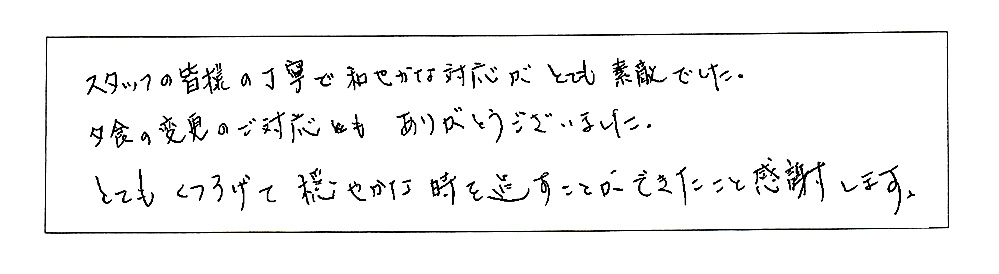 スタッフの皆様の丁寧で和やかな対応がとても素敵でした。
夕食の変更のご対応もありがとうございました。
とてもくつろげて穏やかな時を過すことができたこと感謝します。